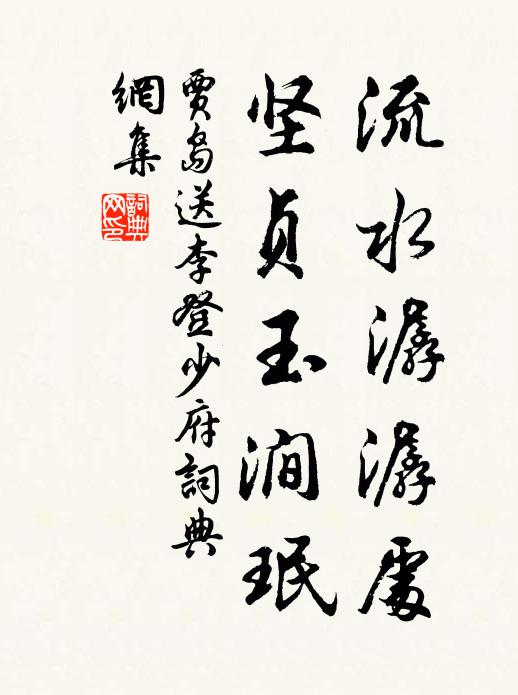 流水潺潺處
坚贞玉涧珉
賈島送李登少府詞典
網集
詞典
网印